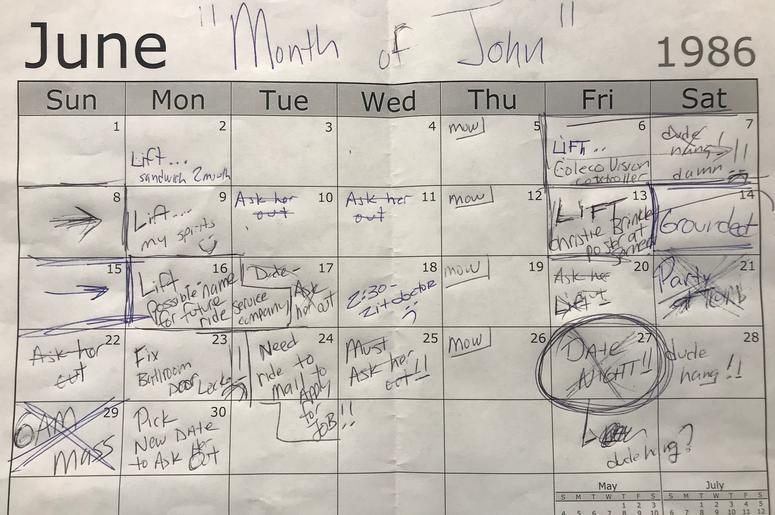 "Month of John"
June 1986
Sun Mon Tue Wed Thu Fri Sat
1 2 3 4 5 6 7
Lift...
sandwich 2 mouth
mow
LIFT..
Coleco Vision
controller
dude
hang!!!
damn
8 9 10 11 12 13 14
Lift....
my spirits
Ask her
out
Ask her
out
mow
LIFT
Christie Brinkley
poster at
Grounded
15 16 17 18 19 20 21
Lift
Possible name
for future
ride
Date-
service
company
Ask
her out
2:30-
Zit doctor
mow
Ask her
Party
22 23 24 25 26 27 28
Ask her
out
Fix
Ballroom
Door Locks
Need
ride to
mall to
Apply
for
JOB!!
Must
Ask her
out!!
mow
DATE
NIGHT!!
dude
hang!!
29 30
Mass
Pick
New DATE
to Ask Her
Out
dude hang?
May July
S M T W T F S S M T W T F S
1 2 3 1 2 3 4 5
4 5 6 7 8 9 10 6 7 8 9 10 11 12